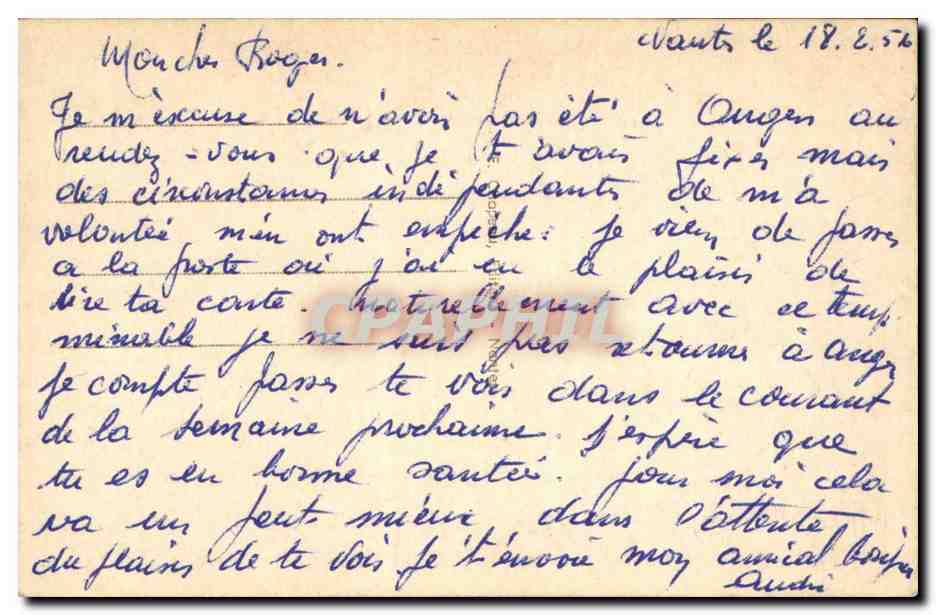 Nantes le 18.2.56
Mon cher Roger.
Je m'excuse de n'avoir pas été à Angers au
rendez-vous que je t'avais fixer mais
des circonstances indépendantes de ma
volontée m'en ont empêché. je viens de passer
a la poste où j'ai eu le plaisir de
lire ta carte. naturellement avec ce temp
minable je ne suis pas retourner à Angers
je compte passer te voir dans le courant
de la semaine prochaine. j'espère que
tu es en bonne santée. pour moi cela
va un peut mieux, dans l'attente
du plaisir de te voir je t'envoie mon amical
André
CPAPHIL